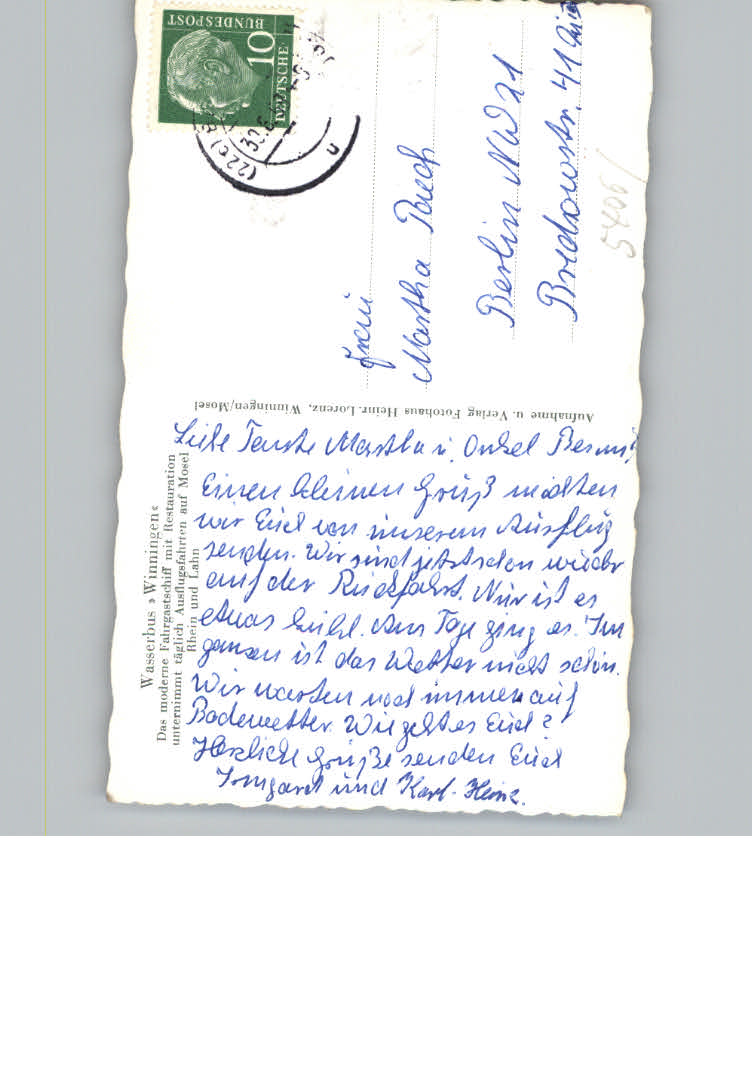 Wasserbus »Winningen«
Das moderne Fahrgastschiff mit Restauration
unternimmt täglich Ausflugsfahrten auf Mosel
Rhein und Lahn
Liebe Tante Martha u. Onkel
Einen kleinen Gruß möchten
wir Euch von unserem Ausflug
senden. Wir sind jetzt schon wieder
auf der Rückfahrt. Nur ist es
etwas kühl. Am Tage ging es. Im
ganzen ist das Wetter nicht schön.
Wir warten noch immer auf
Badewetter. Wie geht es Euch?
Herzliche Grüße senden Euch
Irmgard und Karl-Heinz.
Aufnahme u. Verlag Fotohaus Heinr. Lorenz, Winningen/Mosel
DEUTSCHE
BUNDESPOST
10
(22c)
30.6
u
Frau
Martha
Berlin NW 21
Bredowstr. 41
5406/